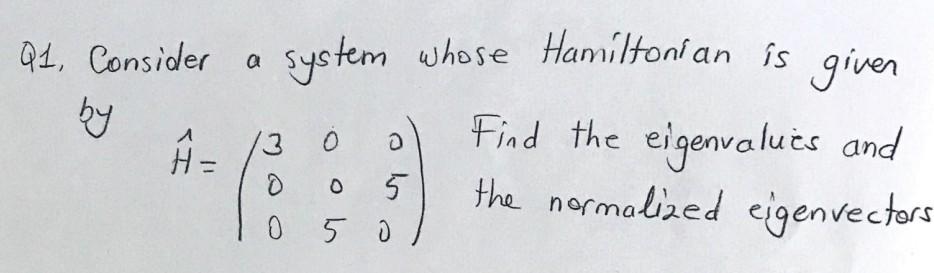 Q1, Consider a system whose Hamiltonian is given
by
Ĥ = (3 0 0) Find the eigenvalues and
0 0 5 the normalized eigenvectors
0 5 0